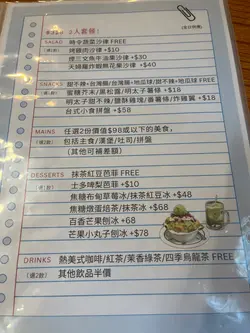 2人套餐!
SALAD 時令蔬菜沙律 FREE
(選1款) 烤雞肉沙律 +$10
煙三文魚牛油果沙律 +$30
天婦羅炸軟殼蟹沙律 +$40
SNACKS 甜不辣+台灣腸/台灣腸+地瓜球/甜不辣+地瓜球 FREE
(選1款) 蜜糖芥末/黑松露/明太子薯條 +$8
明太子甜不辣/鹽酥雞塊/番薯條/炸雞翼 +$18
台式小食拼盤 +$58
MAINS 任選2份價值$98或以下的美食,
(選2款) 包括主食/漢堡/吐司/拼盤
(其他可補差額)
DESSERTS 抹茶紅豆芭菲 FREE
(選1款) 士多啤梨芭菲 +$10
焦糖布甸草莓冰/抹茶紅豆冰 +$48
焦糖燉蛋焙茶/抹茶冰 +$68
百香芒果刨冰 +$68
芒果小丸子刨冰 +$78
DRINKS 熱美式咖啡/紅茶/茉香綠茶/四季烏龍茶 FREE
(選2款) 其他飲品半價